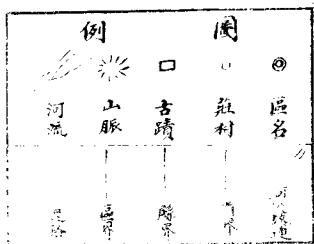 圖例
區名
莊村
古蹟
山脈
河流
縣界
區界